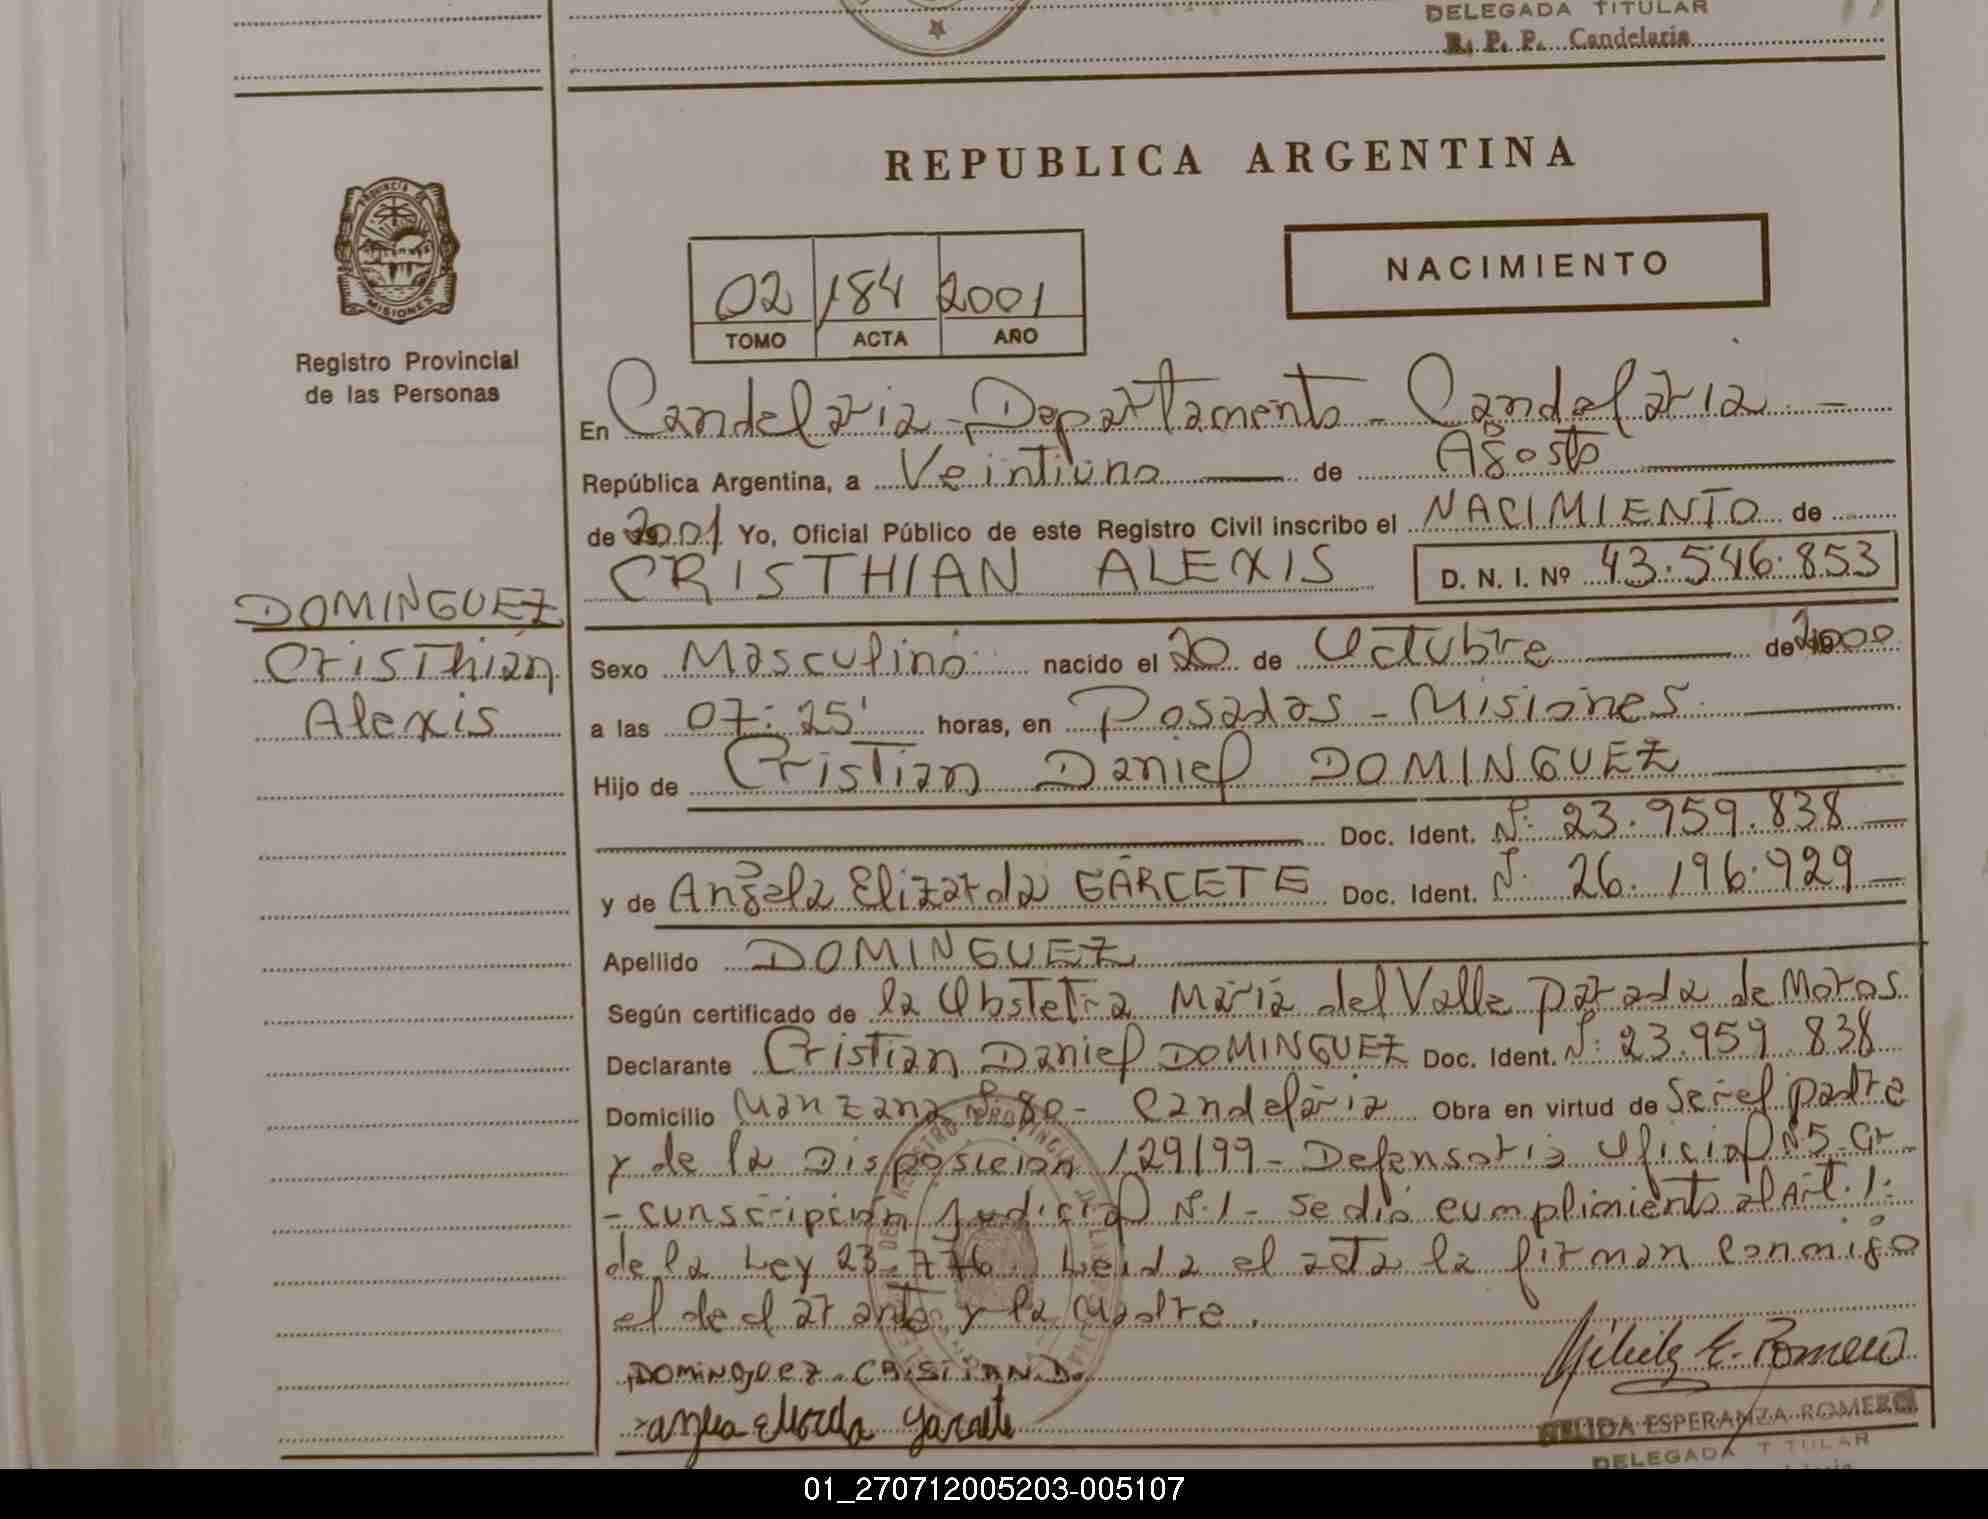 DELEGADA TITULAR
R. P. P. Candelaria
REPUBLICA ARGENTINA
PROVINCIA DE
MISIONES
Registro Provincial
de las Personas
NACIMIENTO
02 184 2001
TOMO ACTA AÑO
En Candelaria - Departamento - Candelaria
República Argentina, a Veintiuno de Agosto
de 2001 Yo, Oficial Público de este Registro Civil inscribo el NACIMIENTO de
CRISTHIAN ALEXIS D. N. I. Nº 43.546.853
DOMINGUEZ
Cristhian
Alexis
Sexo Masculino nacido el 20 de Octubre de 2000
a las 07:25' horas, en Posadas - Misiones
Hijo de Cristian Daniel DOMINGUEZ
Doc. Ident. Nº 23.959.838
y de Angela Elizarda GARCETE Doc. Ident. Nº 26.196.929
Apellido DOMINGUEZ
Según certificado de la Obstetra Maria del Valle Parada de Moras
Declarante Cristian Daniel DOMINGUEZ Doc. Ident. Nº 23.959.838
Domicilio Manzana Nº 80 - Candelaria Obra en virtud de Ser el padre
y de la Disposicion 129/99 - Defensoria Oficial Nº 5 Cir-
- cunscripción Judicial Nº 1 - Se dió cumplimiento al Art. 1º
de la Ley 23.776. Leida el acta la firman conmigo
el declarante y la Madre.
DOMINGUEZ CRISTIAN D.
Nélida E. Romero
NELIDA ESPERANZA ROMERO
DELEGADA TITULAR
01_270712005203-005107